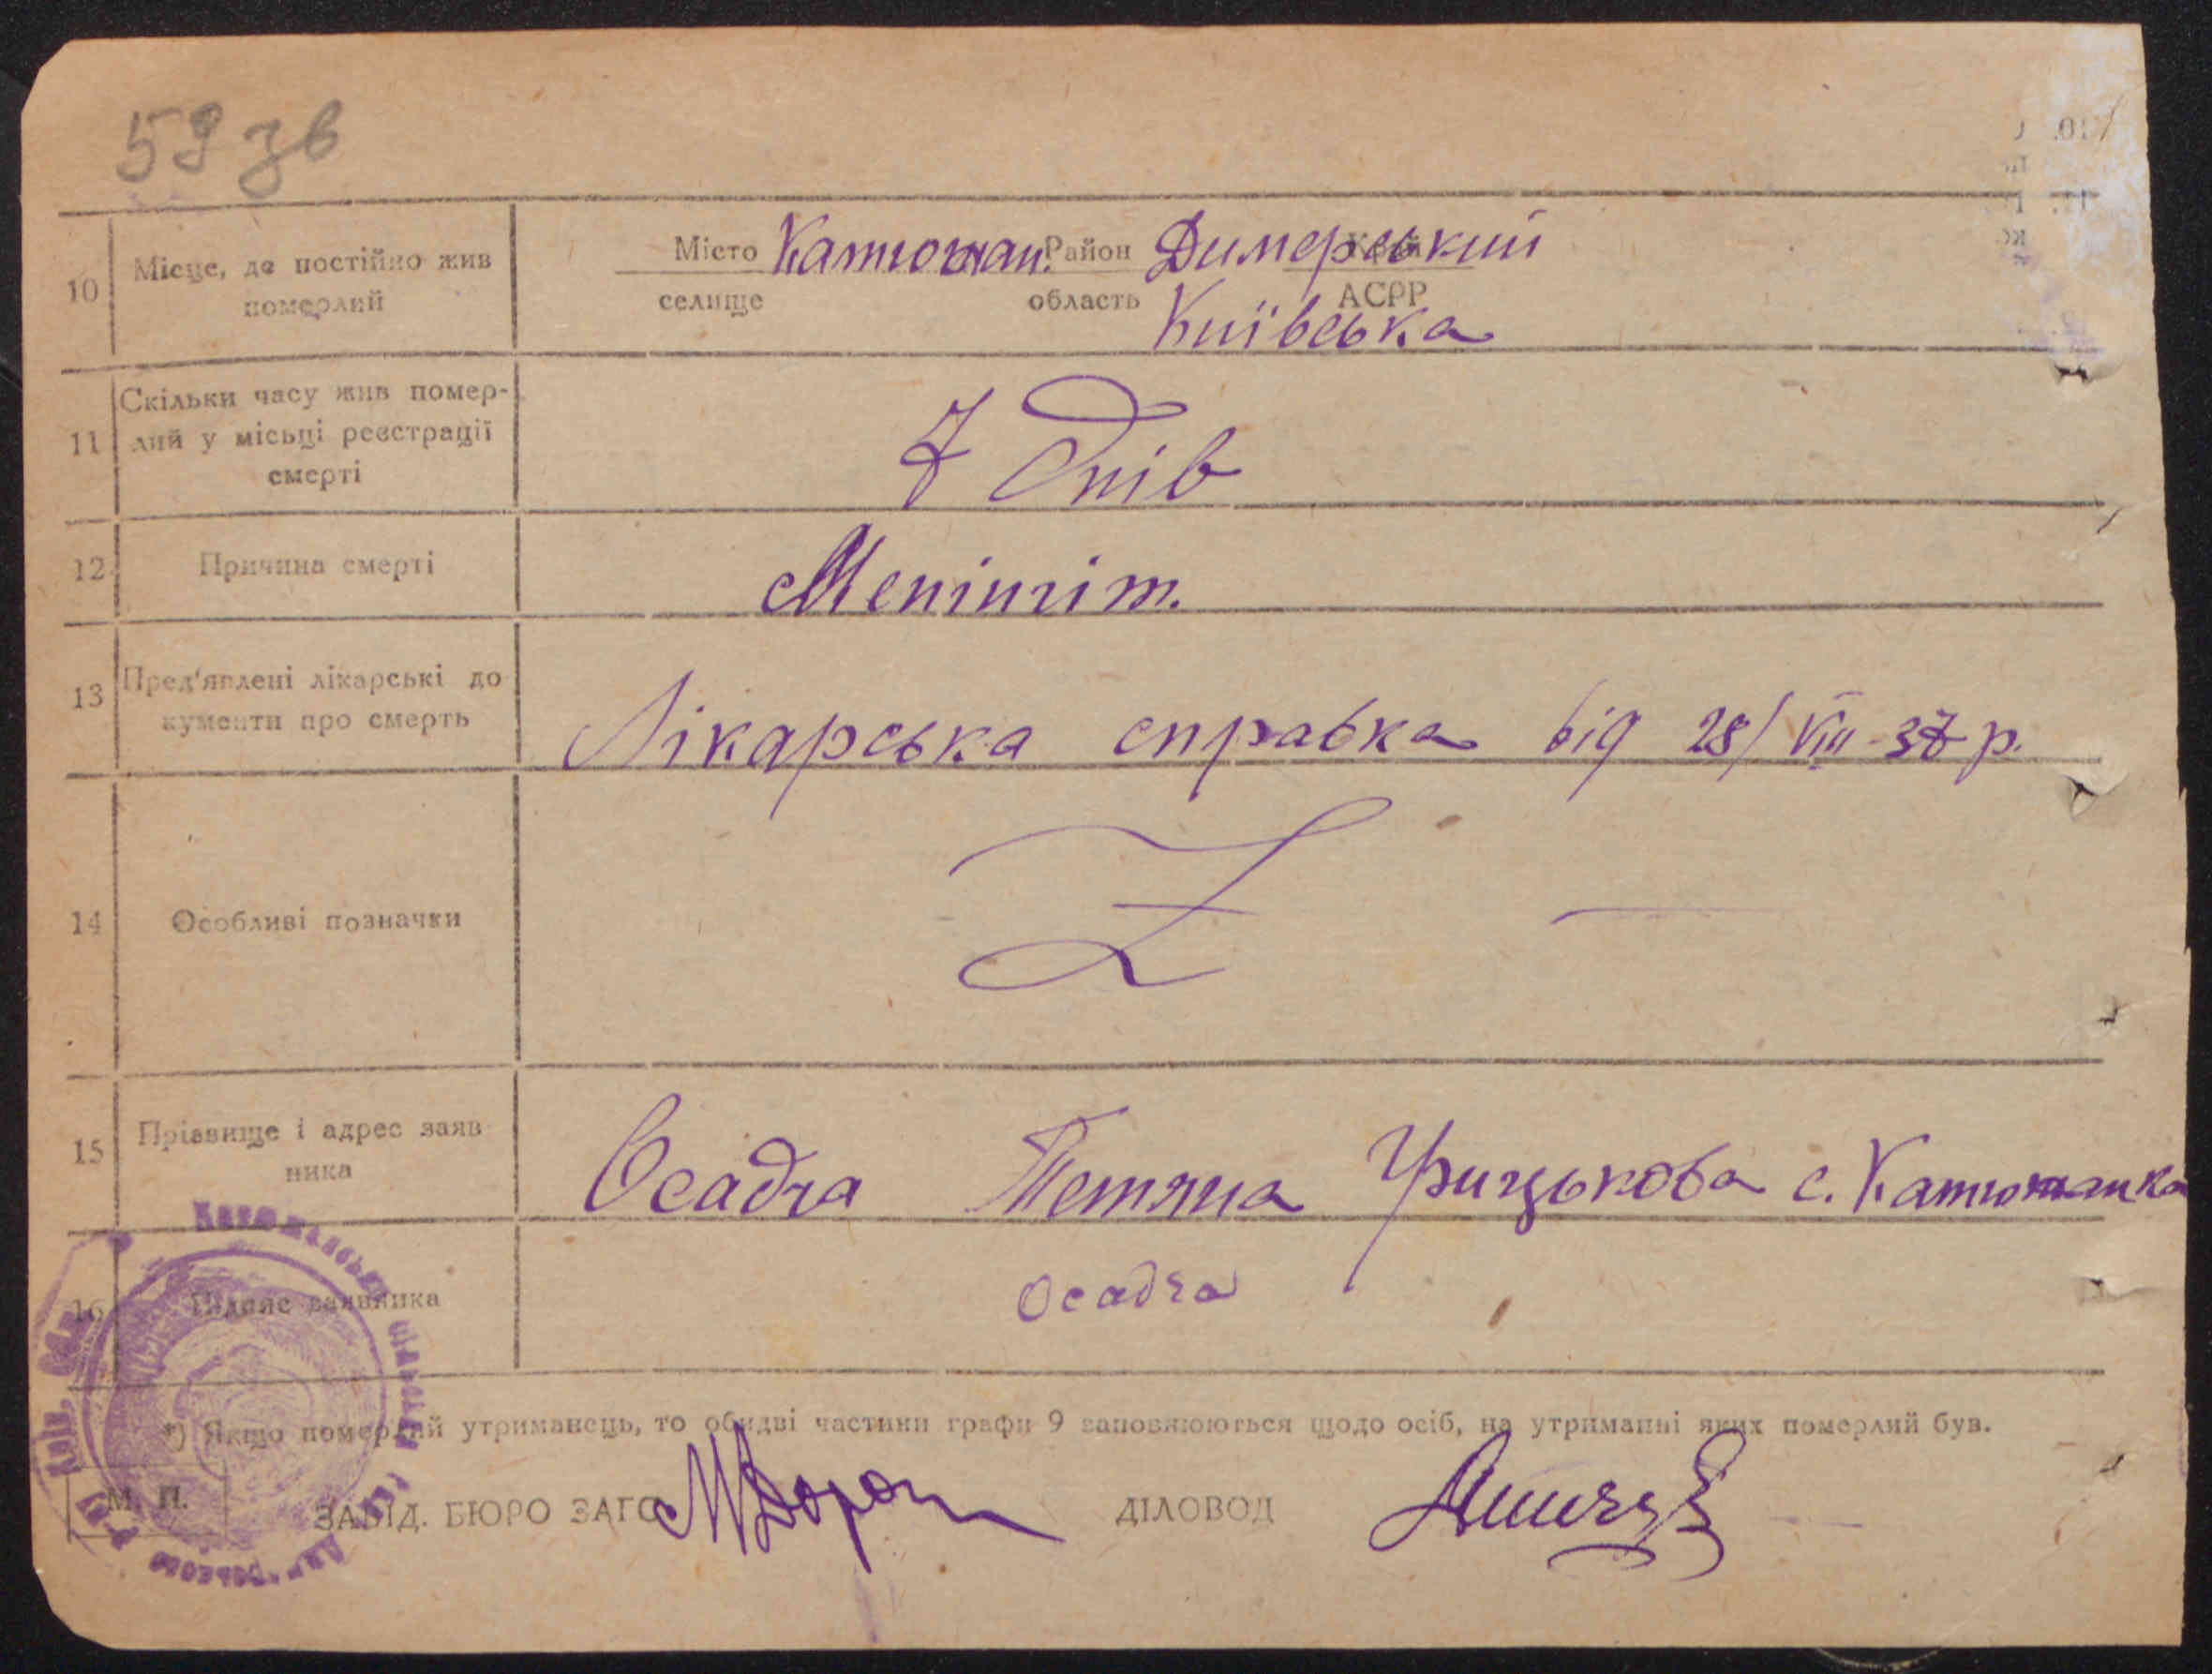 59 зв
10 Місце, де постійно жив померлий
Місто Катюжан. Район Димерський Край
селище область Київська АСРР
11 Скільки часу жив помер-
лий у місьці реєстрації
смерті
7 днів
12 Причина смерті Менінгіт.
13 Пред'явлені лікарські до
кументи про смерть
Лікарська справка від 28/VIII-37 р.
14 Особливі позначки Z —
15 Прізвище і адрес заяв
ника
Осадча Тетяна Грицькова с. Катюжанка
16 Підпис заявника Осадча
*) Якщо померлий утриманець, то обидві частини графи 9 заповнюються щодо осіб, на утриманні яких померлий був.
М. П. ЗАВІД. БЮРО ЗАГС ДІЛОВОД